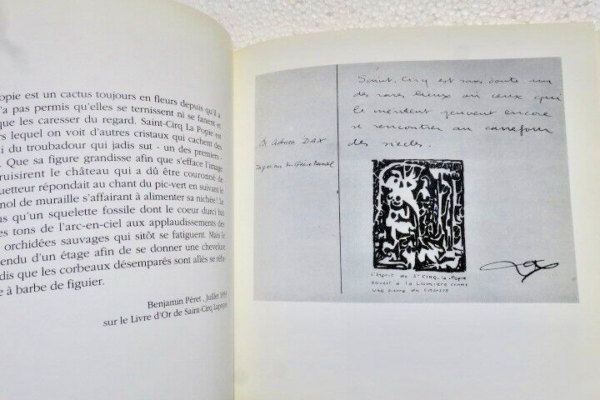 opie est un cactus toujours en fleurs depuis qu'il a
'a pas permis qu'elles se ternissent ni se fanent et
que les caresser du regard. Saint-Cirq La Popie est
rs lequel on voit d'autres cristaux qui cachent des
i du troubadour qui jadis sut - un des premiers -
. Que sa figure grandisse afin que s'efface l'image
ruisirent le château qui a dû être couronné de
uetteur répondait au chant du pic-vert en suivant le
nol de muraille s'affairant à alimenter sa nichée ! Le
us qu'un squelette fossile dont le coeur durci bat
es tons de l'arc-en-ciel aux applaudissements des
orchidées sauvages qui sitôt se fatiguent. Mais le
endu d'un étage afin de se donner une chevelure
dis que les corbeaux désemparés sont allés se
e à barbe de figuier.
Benjamin Péret . Juillet
sur le Livre d'Or de Saint-Cirq Lapopie
Saint-Cirq est sans doute un
des rares lieux où ceux qui
le méritent peuvent encore
se rencontrer au carrefour
des siècles.
L'esprit de St CIRQ-la-Popie
ouvert à la lumière comme
une